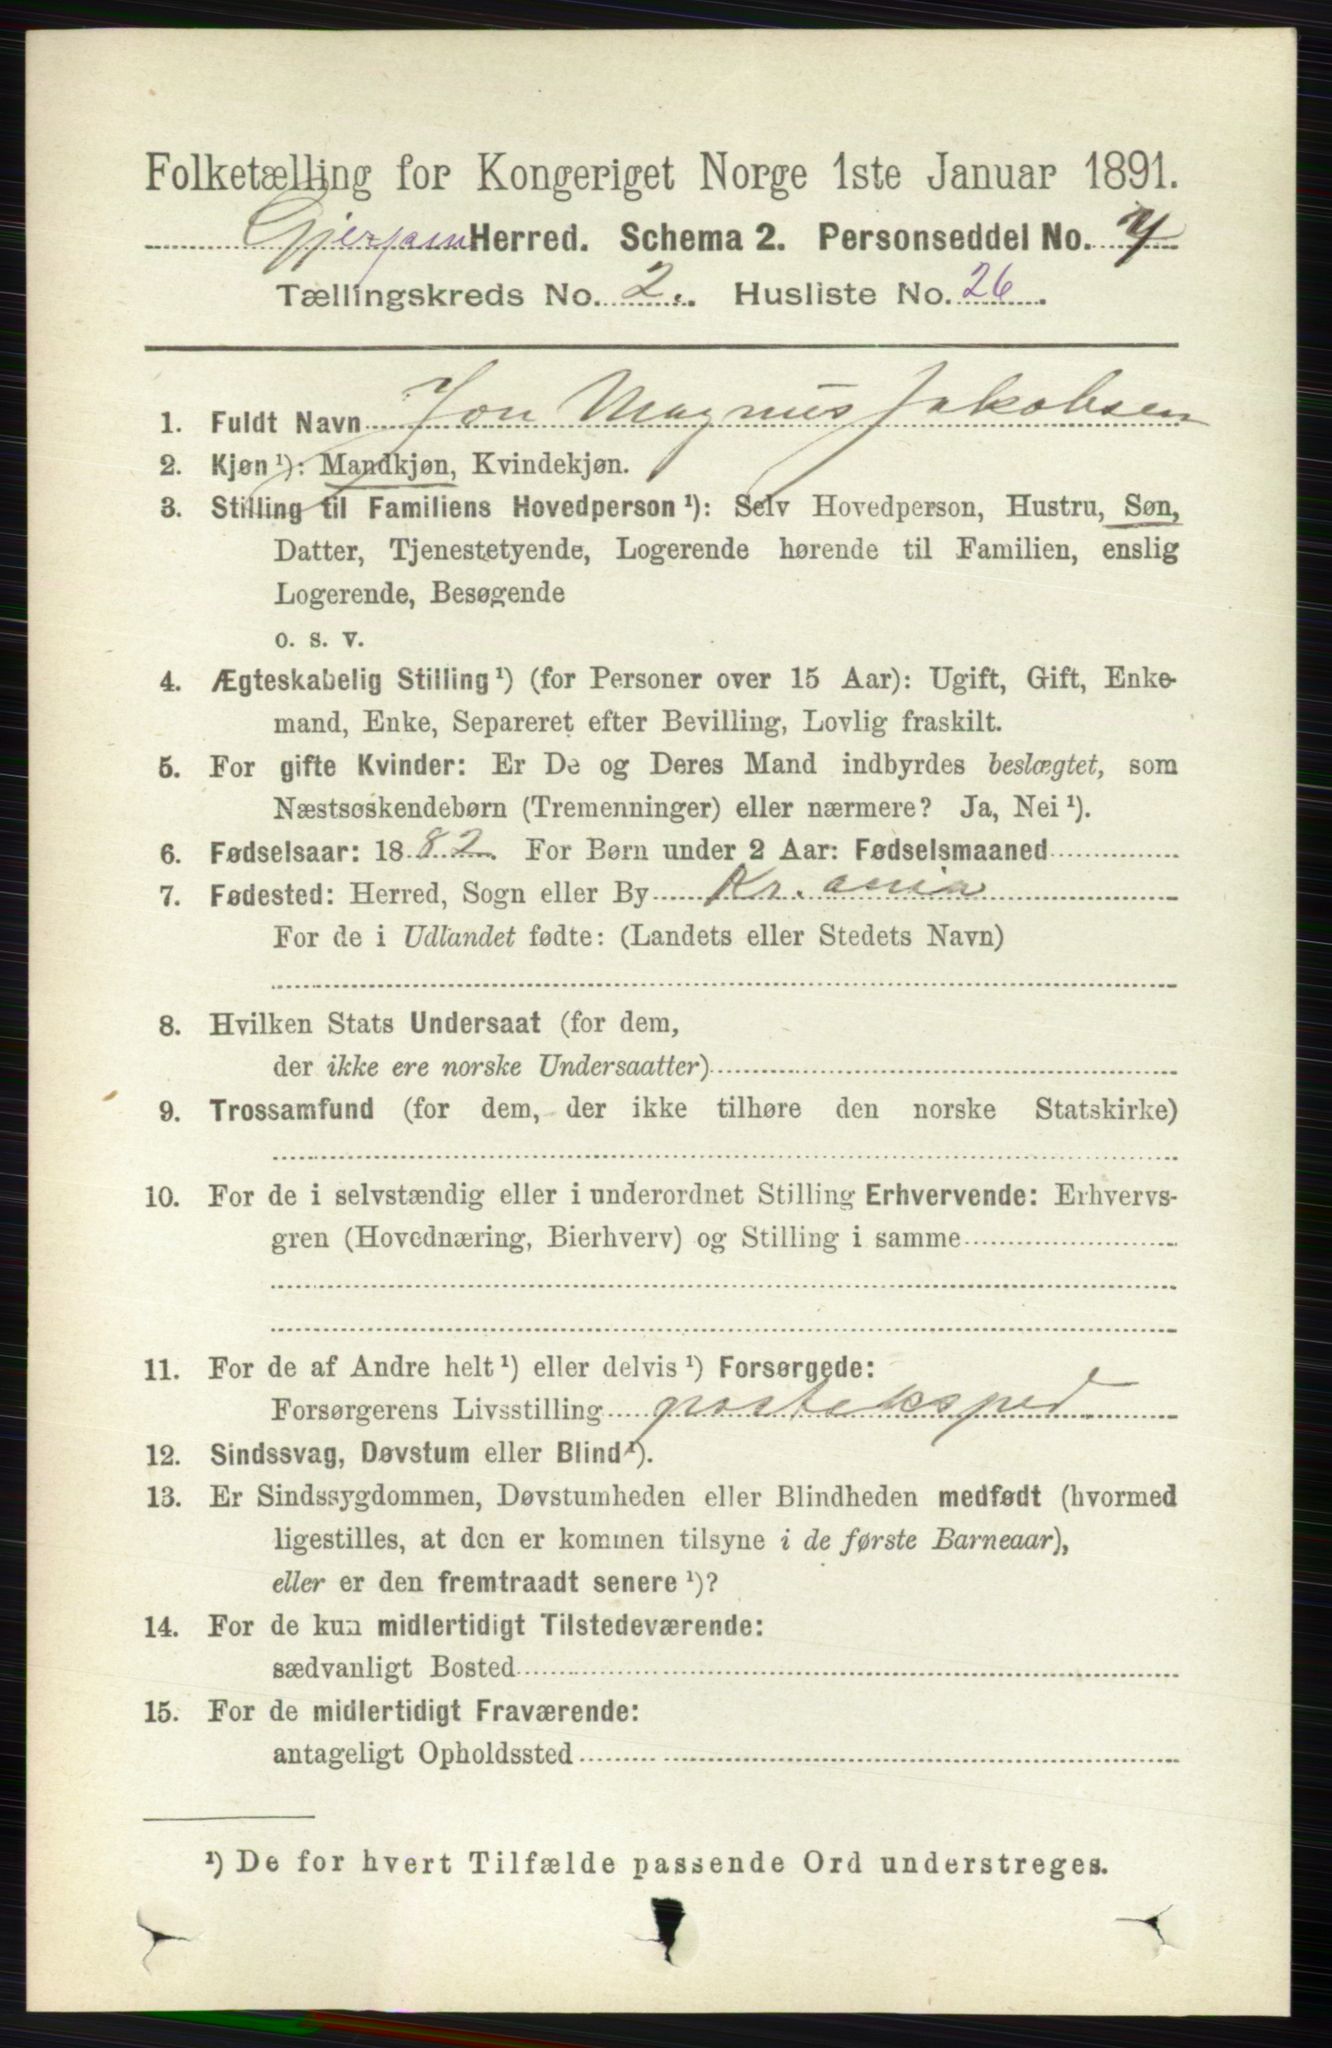 Folketælling for Kongeriget Norge 1ste Januar 1891.
Gjerpen Herred. Schema 2. Personseddel No.
Tællingskreds No. 2. Husliste No. 26.
1. Fuldt Navn Jon Magnus Jakobsen
2. Kjøn¹): Mandkjøn, Kvindekjøn.
3. Stilling til Familiens Hovedperson¹): Selv Hovedperson, Hustru, Søn,
Datter, Tjenestetyende, Logerende hørende til Familien, enslig
Logerende, Besøgende
o. s. v.
4. Ægteskabelig Stilling¹) (for Personer over 15 Aar): Ugift, Gift, Enke-
mand, Enke, Separeret efter Bevilling, Lovlig fraskilt.
5. For gifte Kvinder: Er De og Deres Mand indbyrdes beslægtet, som
Næstsøskendebørn (Tremenninger) eller nærmere? Ja, Nei¹).
6. Fødselsaar: 1882. For Børn under 2 Aar: Fødselsmaaned
7. Fødested: Herred, Sogn eller By Kr.ania
For de i Udlandet fødte: (Landets eller Stedets Navn)
8. Hvilken Stats Undersaat (for dem,
der ikke ere norske Undersaatter)
9. Trossamfund (for dem, der ikke tilhøre den norske Statskirke)
10. For de i selvstændig eller i underordnet Stilling Erhvervende: Erhvervs-
gren (Hovednæring, Bierhverv) og Stilling i samme
11. For de af Andre helt¹) eller delvis¹) Forsørgede:
Forsørgerens Livsstilling posteksped.
12. Sindssvag, Døvstum eller Blind¹).
13. Er Sindssygdommen, Døvstumheden eller Blindheden medfødt (hvormed
ligestilles, at den er kommen tilsyne i de første Barneaar),
eller er den fremtraadt senere¹)?
14. For de kun midlertidigt Tilstedeværende:
sædvanligt Bosted
15. For de midlertidigt Fraværende:
antageligt Opholdssted
¹) De for hvert Tilfælde passende Ord understreges.